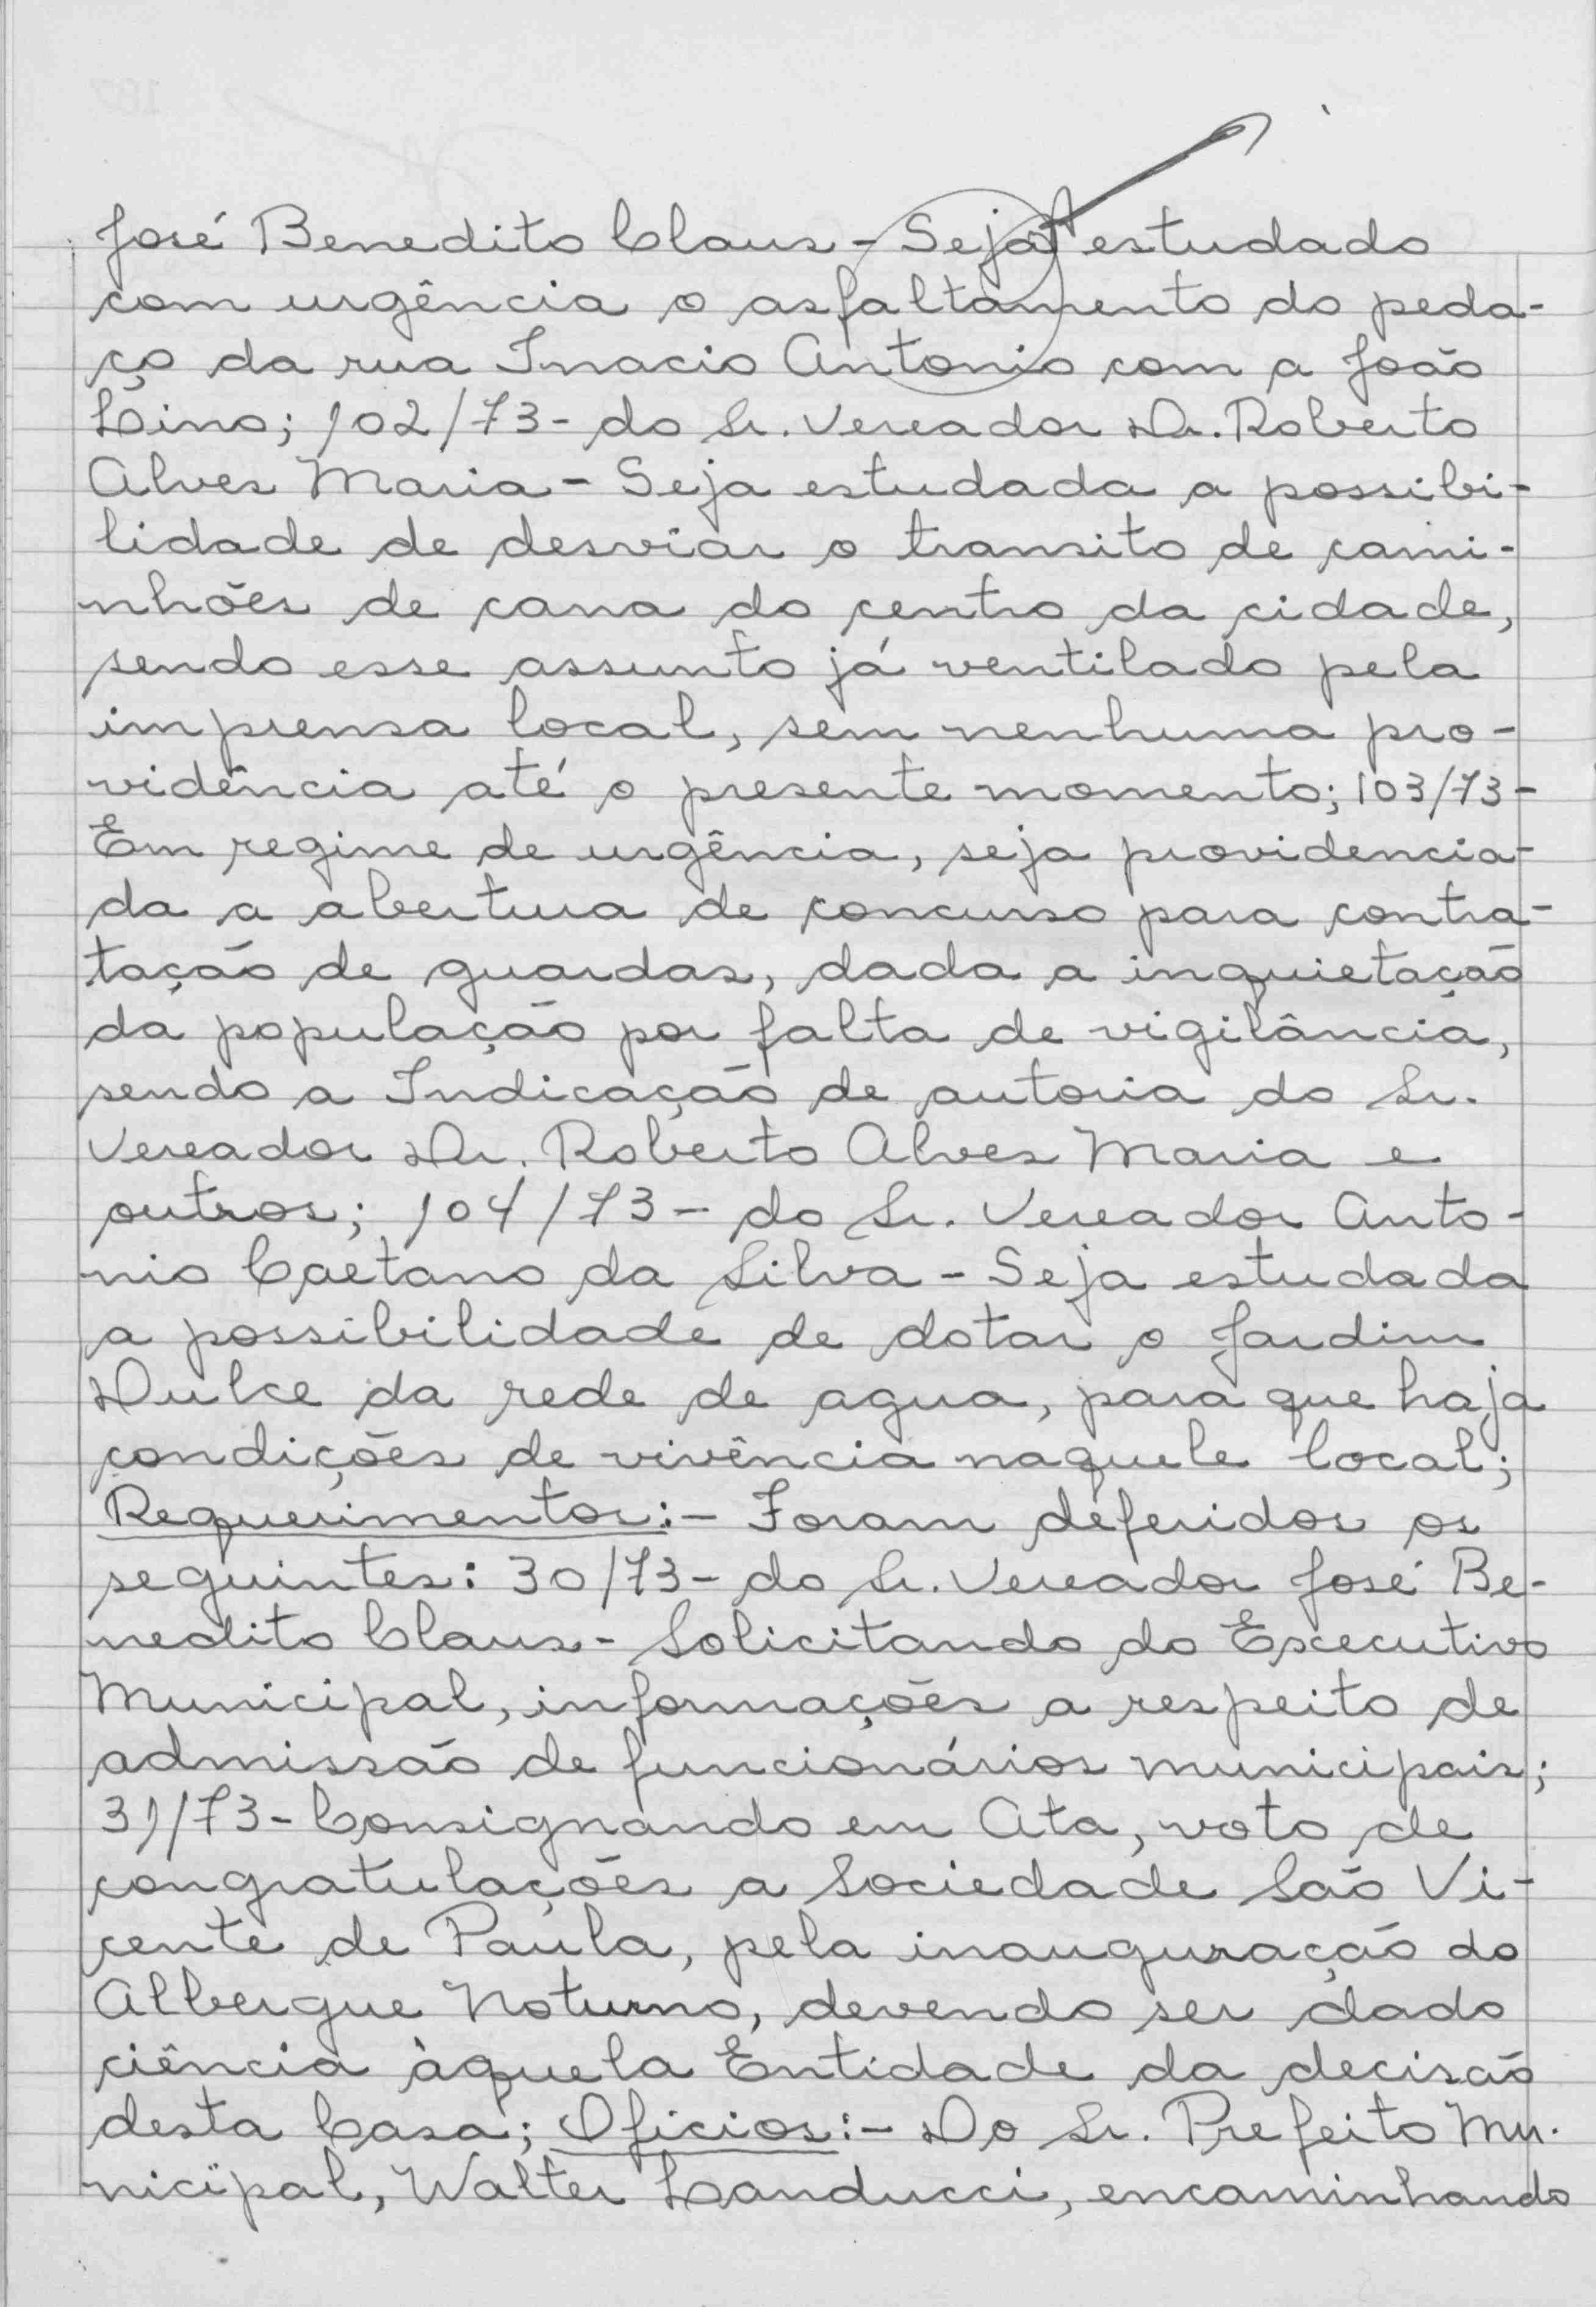 José Benedito Claus - Seja estudado
com urgência o asfaltamento do peda-
ço da rua Inacio Antonio com a João
Lino; 102/73 - do Sr. Vereador Dr. Roberto
Alves Maria - Seja estudada a possibi-
lidade de desviar o transito de cami-
nhões de cana do centro da cidade,
sendo esse assunto já ventilado pela
imprensa local, sem nenhuma pro-
vidência até o presente momento; 103/73 -
Em regime de urgência, seja providencia-
da a abertura de concurso para contra-
tação de guardas, dada a inquietação
da população por falta de vigilância,
sendo a Indicação de autoria do Sr.
Vereador Dr. Roberto Alves Maria e
outros; 104/73 - do Sr. Vereador Anto-
nio Caetano da Silva - Seja estudada
a possibilidade de dotar o Jardim
Dulce da rede de agua, para que haja
condições de vivência naquele local;
Requerimentos:- Foram deferidos os
seguintes: 30/73 - do Sr. Vereador José Be-
nedito Claus - Solicitando do Executivo
Municipal, informações a respeito de
admissão de funcionários municipais;
31/73 - Consignando em Ata, voto de
congratulações a Sociedade São Vi-
cente de Paula, pela inauguração do
Albergue Noturno, devendo ser dado
ciência àquela Entidade da decisão
desta Casa; Oficios:- Do Sr. Prefeito Mu-
nicipal, Walter Landucci, encaminhando